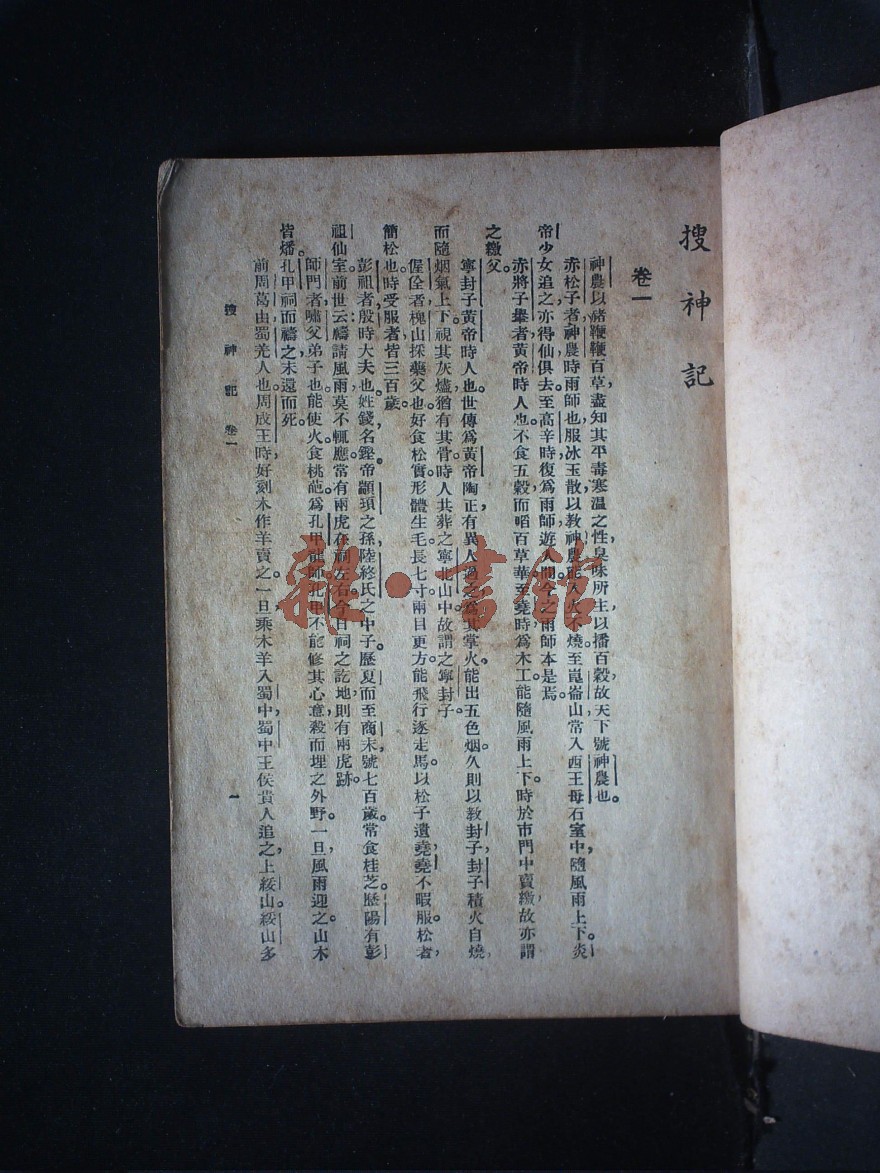 搜神記
卷一
神農以赭鞭鞭百草，盡知其平毒寒溫之性，臭味所主，以播百穀，故天下號神農也。
赤松子者，神農時雨師也，服冰玉散，以教神農，能入火不燒。至崑崙山，常入西王母石室中，隨風雨上下。炎
帝少女追之，亦得仙俱去。至高辛時，復爲雨師，遊人間。今之雨師本是焉。
赤將子轝者，黃帝時人也。不食五穀，而啗百草華。至堯時，爲木工。能隨風雨上下。時於市門中賣繳，故亦謂
之繳父。
寧封子，黃帝時人也。世傳爲黃帝陶正，有異人過之，爲其掌火。能出五色烟。久則以教封子，封子積火自燒，
而隨烟氣上下。視其灰燼，猶有其骨。時人共葬之寧北山中。故謂之寧封子。
偓佺者，槐山採藥父也。好食松實。形體生毛，長七寸。兩目更方。能飛行逐走馬。以松子遺堯，堯不暇服。松者，
簡松也。時受服者，皆三百歲。
彭祖者，殷時大夫也。姓錢，名鏗。帝顓頊之孫，陸終氏之中子。歷夏而至商末，號七百歲。常食桂芝。歷陽有彭
祖仙室。前世云：禱請風雨，莫不輒應。常有兩虎在祠左右。今日祠之訖地，則有兩虎跡。
師門者，嘯父弟子也。能使火。食桃葩。爲孔甲龍師。孔甲不能修其心意，殺而埋之外野。一旦，風雨迎之，山木
皆燔。孔甲祠而禱之，未還而死。
前周葛由，蜀羌人也。周成王時，好刻木作羊賣之。一旦，乘木羊入蜀中，蜀中王侯貴人追之，上綏山。綏山多
搜神記 卷一
一
雜·書館